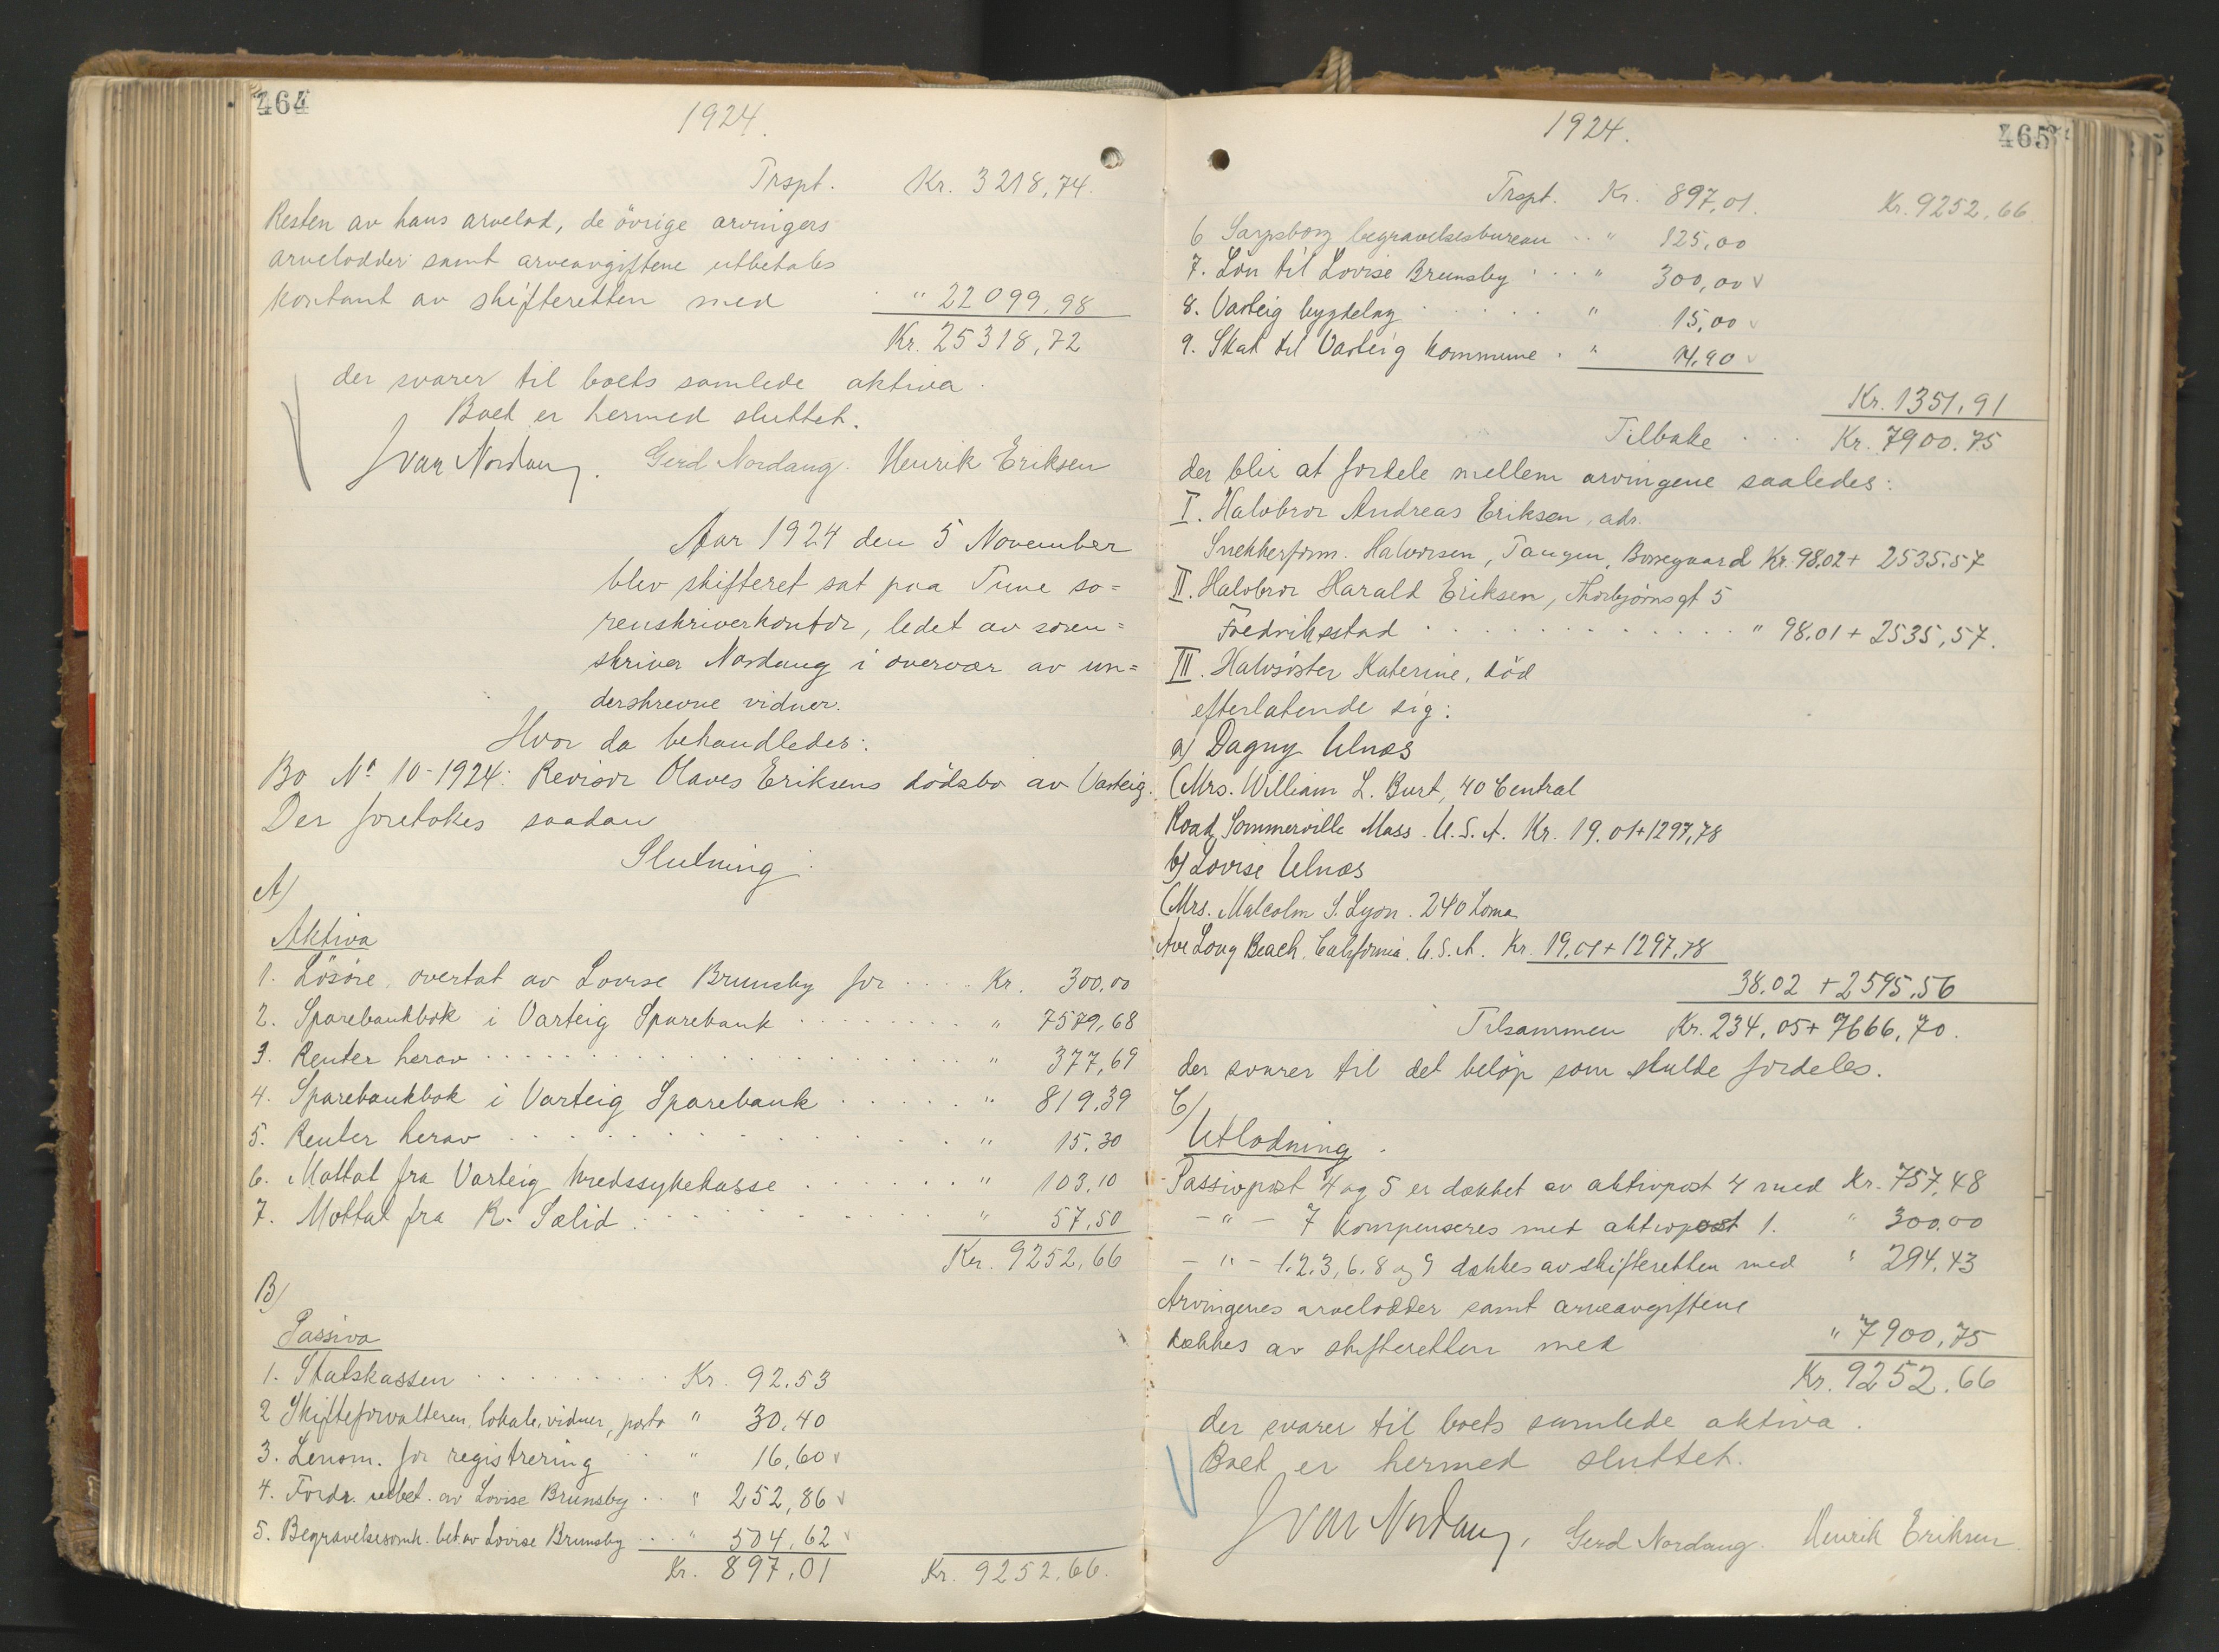 464
1924.
Trspt. Kr. 3218,74.
Resten av hans arvelod, de övrige arvingers
arvelodder samt arveavgiftene utbetales
kontant av skifteretten med " 22099,98
Kr. 25318,72
der svarer til boets samlede aktiva.
Boet er hermed sluttet.
Ivar Nordang. Gerd Nordang. Henrik Eriksen
Aar 1924 den 5 November
blev skifteret sat paa Tune so=
renskriverkontor, ledet av soren=
skriver Nordang i overvær av un=
derskrevne vidner.
Hvor da behandledes:
Bo No 10-1924: Revisor Olaves Eriksens dödsbo av Varteig.
Der foretokes saadan
Slutning:
A)
Aktiva
1. Lösöre, overtat av Lovise Brunsby for .... Kr. 300,00
2. Sparebankbok i Varteig Sparebank ........ " 7579,68
3. Renter herav .................... " 377,69
4. Sparebankbok i Varteig Sparebank ...... " 819,39
5. Renter herav .................. " 15.30
6. Mottat fra Varteig kredssykekasse ....... " 103,10
7. Mottat fra R. Sælid ............ " 57,50
Kr. 9252,66
B)
Passiva
1. Statskassen ......... Kr. 92.53
2 Skifteforvalteren, lokale, vidner, porto " 30,40
3. Lensm. for registrering .. " 16,60 v
4. Fordr. utbet. av Lovise Brunsby .. " 252,86 v
5. Begravelsesomk. bet. av Lovise Brunsby ... " 504,62 v
Kr. 897,01 Kr. 9252,66.
465
1924.
Trspt. Kr. 897,01. Kr. 9252,66.
6 Sarpsborg begravelsesbureau .. " 125,00
7. Lön til Lovise Brunsby ... " 300,00 v
8. Varteig bygdelag ..... " 15,00 v
9. Skat til Varteig kommune . " 14,90 v
Kr. 1351,91
Tilbake ... Kr. 7900.75
der blir at fordele mellem arvingene saaledes:
I. Halvbror Andreas Eriksen, adr.
Snekkerform. Halvorsen, Tangen, Borregaard Kr. 98.02 + 2535.57
II. Halvbror Harald Eriksen, Thorbjørnsgt 5
Fredrikstad ............. " 98.01 + 2535,57.
III. Halvsöster Katerine, död
efterlatende sig:
a) Dagny Ulnæs
(Mrs. William L. Burt, 40 Central
Road, Sommerville Mass. U.S.A. Kr. 19.01+1297,78
b) Lovise Ulnæs
(Mrs. Malcolm S. Lyon. 240 Loma
Ave Long Beach, California. U.S.A. Kr. 19.01 + 1297.78
38.02 + 2595,56
Tilsammen Kr. 234.05 + 7666,70.
der svarer til det beløp som skulde fordeles.
C)
Utlodning.
Passivpost 4 og 5 er dækket av aktivpost 4 med Kr. 757,48
- " - 7 kompenseres med aktivpost 1. " 300,00
- " - 1.2.3,6.8 og 9 dækkes av skifteretten med " 294.43
Arvingenes arvelodder samt arveavgiftene
dækkes av skifteretten med " 7900,75
Kr. 9252.66
der svarer til boets samlede aktiva.
Boet er hermed sluttet.
Ivar Nordang, Gerd Nordang. Henrik Eriksen.